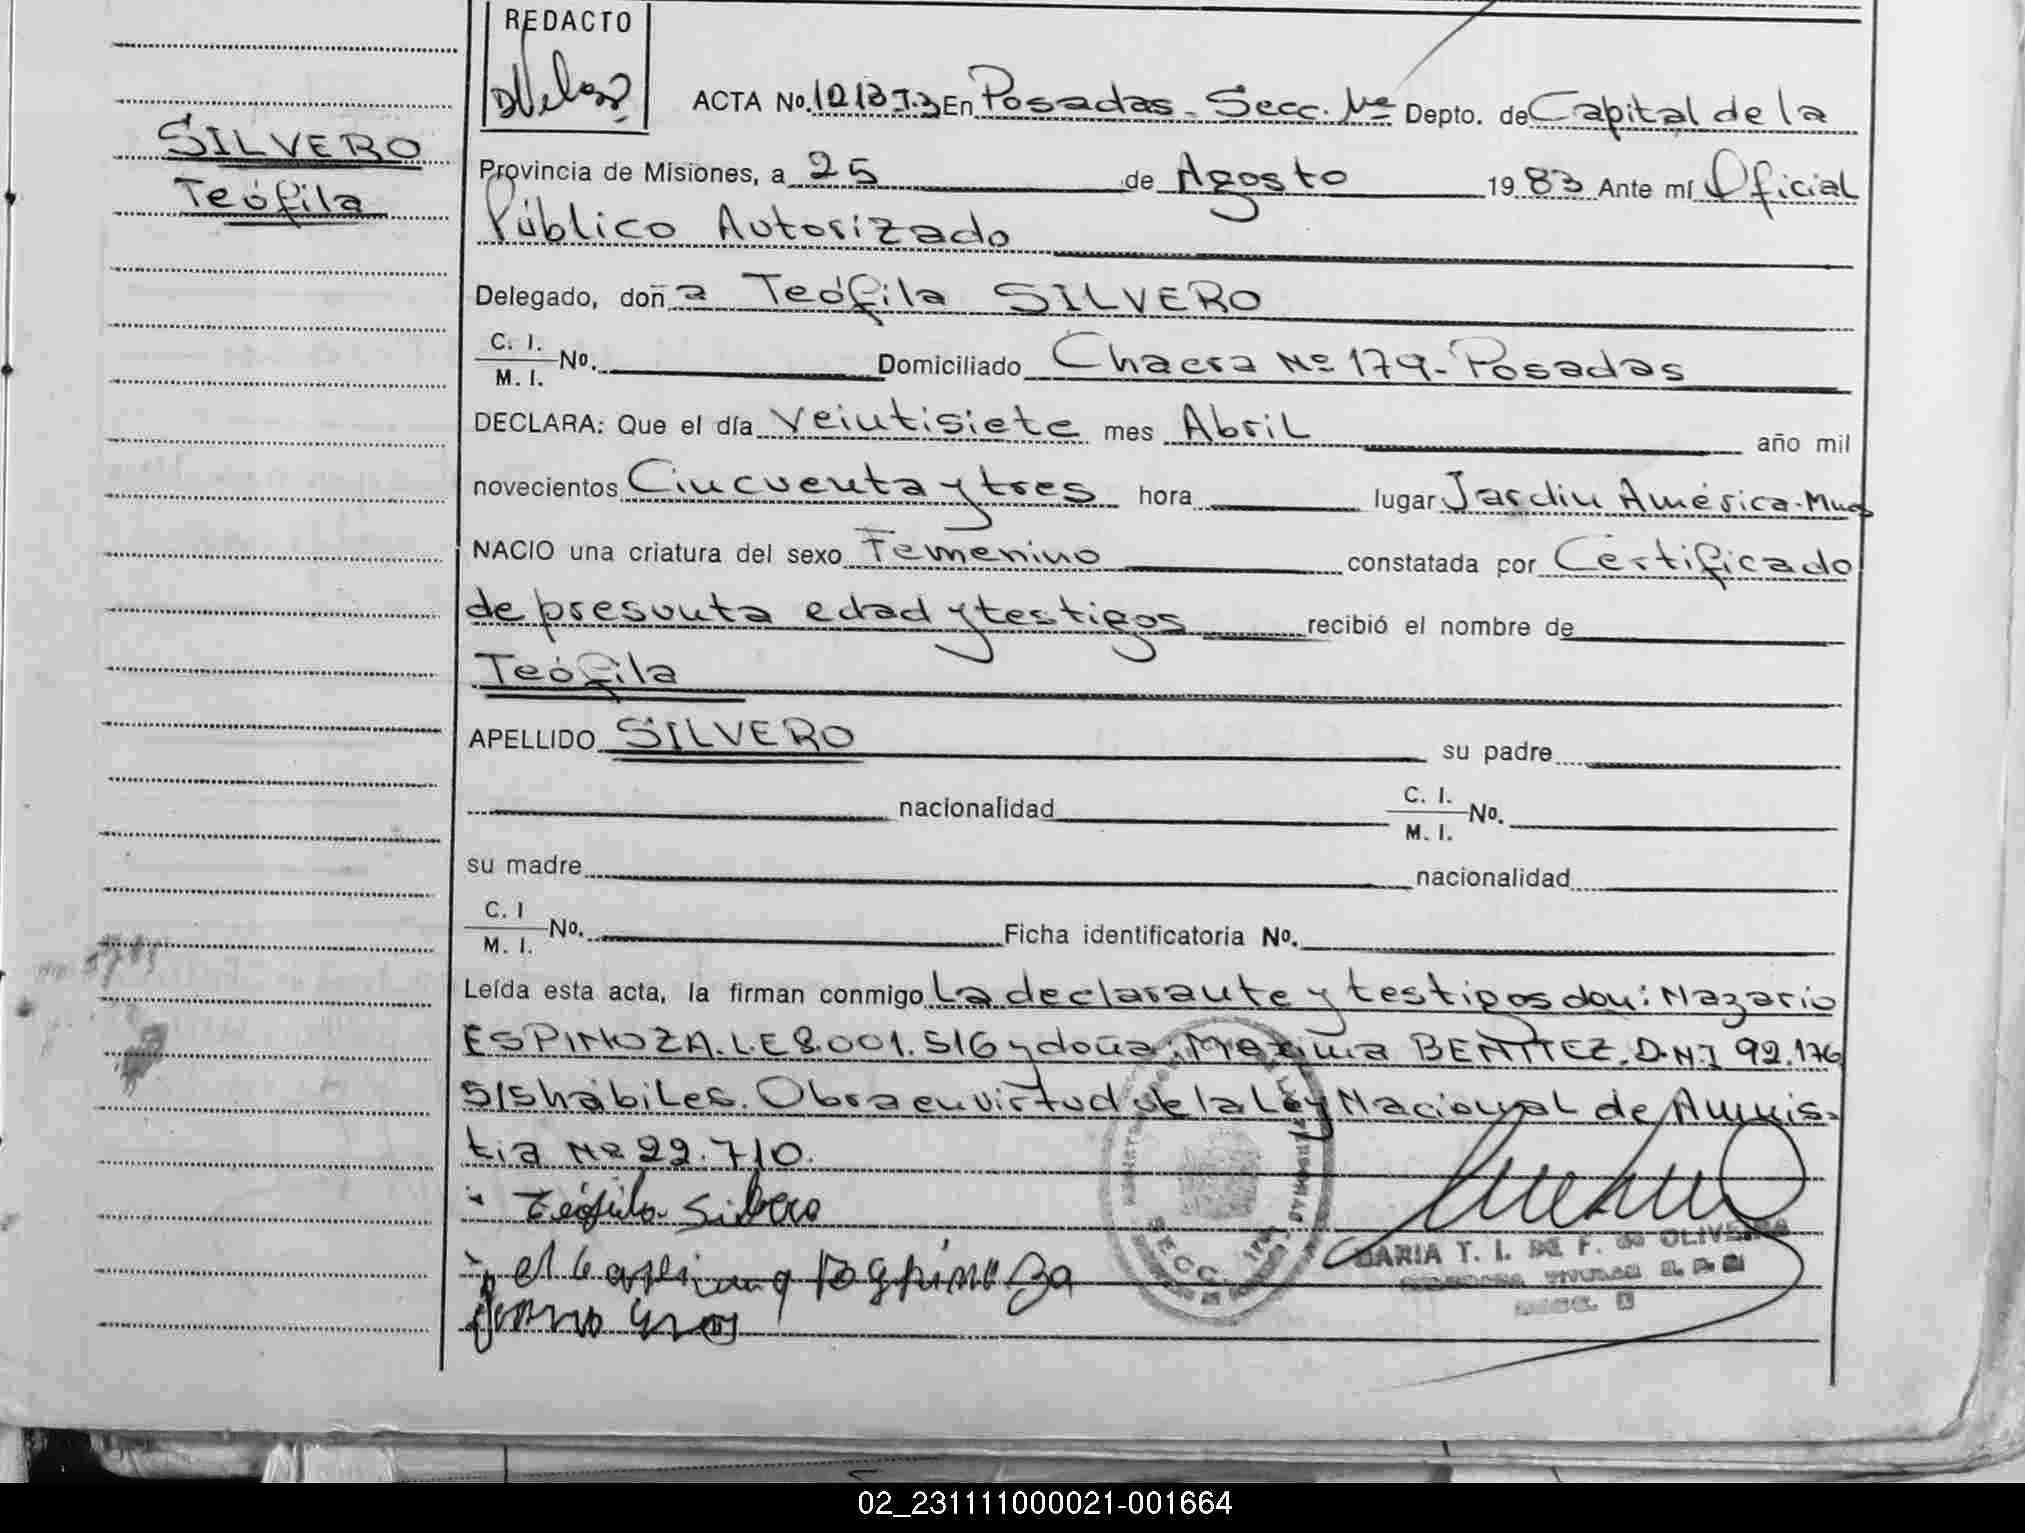 REDACTO
SILVERO
Teófila
ACTA No. En Posadas - Secc. Depto. de Capital de la
Provincia de Misiones, a 25 de Agosto 19 83 Ante mí Oficial
Público Autorizado
Delegado, doña Teófila SILVERO
C. I.
M. I. No. Domiciliado Chacra Nº 179 - Posadas
DECLARA: Que el día Veintisiete mes Abril año mil
novecientos Cincuenta y tres hora lugar Jardín América - Mnes
NACIO una criatura del sexo Femenino constatada por Certificado
de presunta edad y testigos recibió el nombre de
Teófila
APELLIDO SILVERO su padre
nacionalidad C. I.
M. I. No.
su madre nacionalidad
C. I
M. I. No. Ficha identificatoria No.
Leída esta acta, la firman conmigo La declarante y testigos don: Nazario
ESPINOZA. L.E 8.001.516 y doña: Maxima BENITEZ. D.N.I 92.176
515 hábiles. Obra en virtud de la Ley Nacional de Amnis-
tia Nº 22.710.
Teófila Silvero
MARIA T. I. DE F. de OLIVEIRA
SECC.
02_231111000021-001664